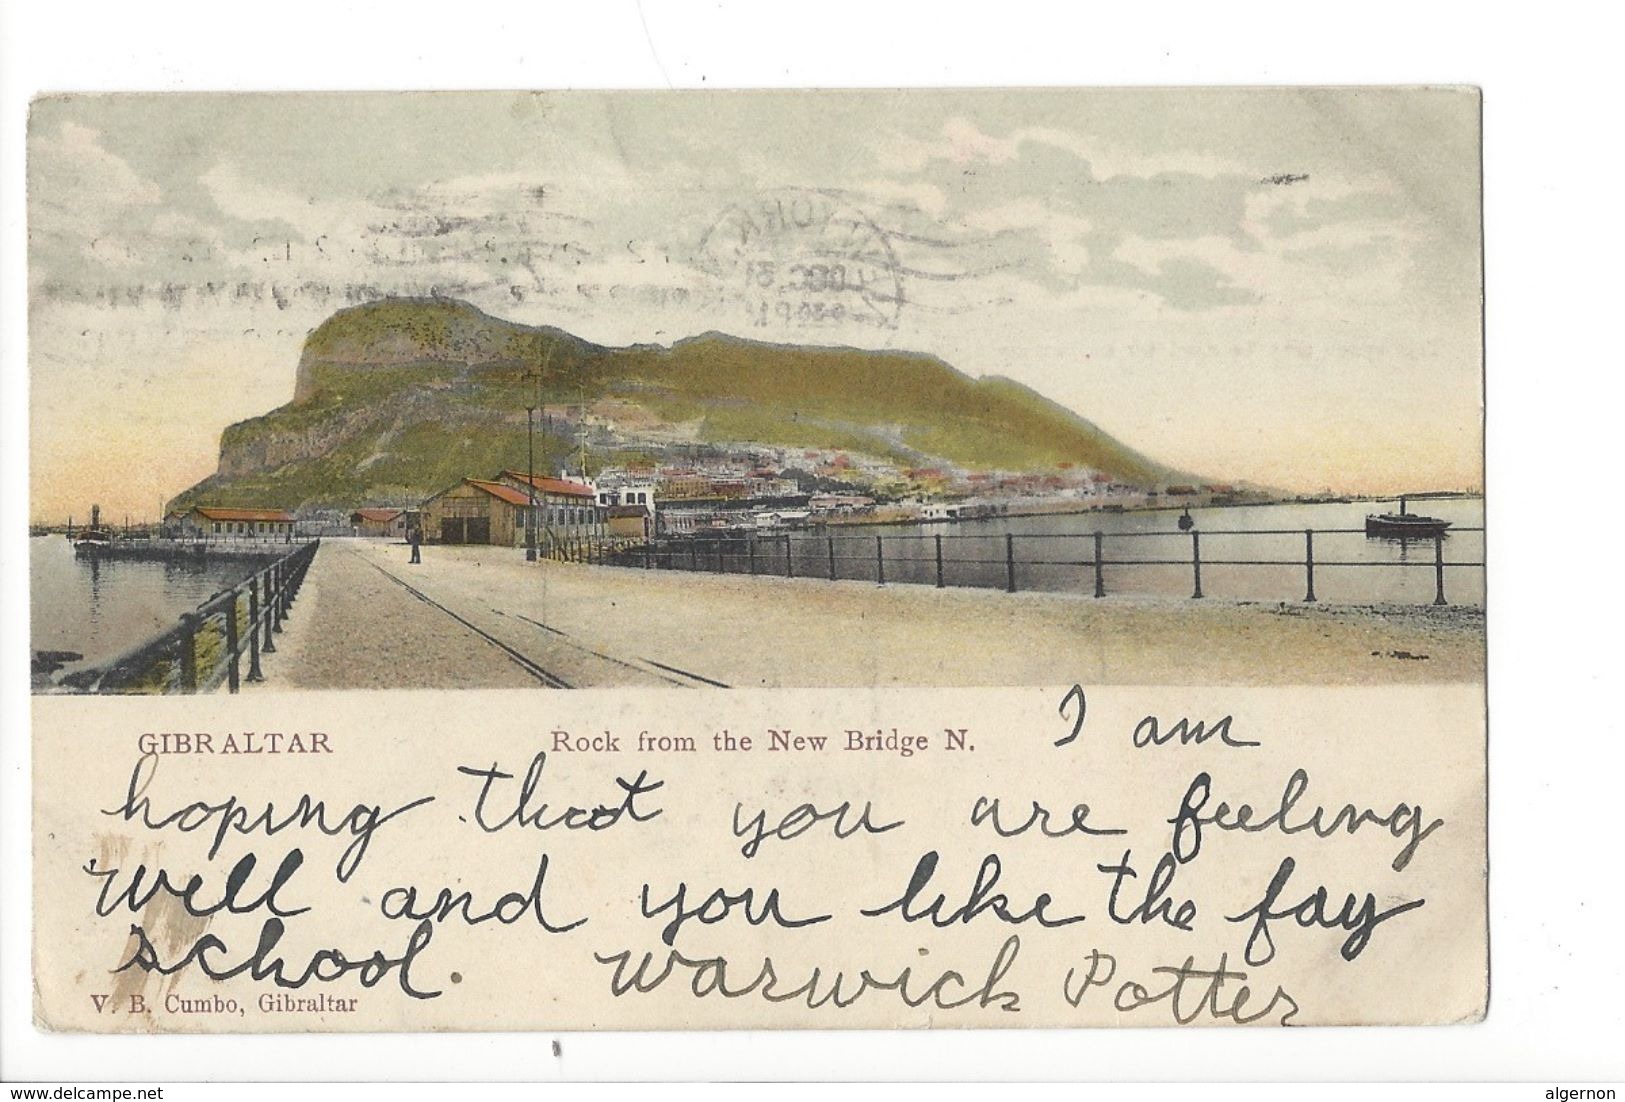 NEW YORK.
DEC 31
9-30P
GIBRALTAR Rock from the New Bridge N. I am
hoping that you are feeling
well and you like the fay
school. Warwick Potter
V. B. Cumbo, Gibraltar
www.delcampe.net algernon